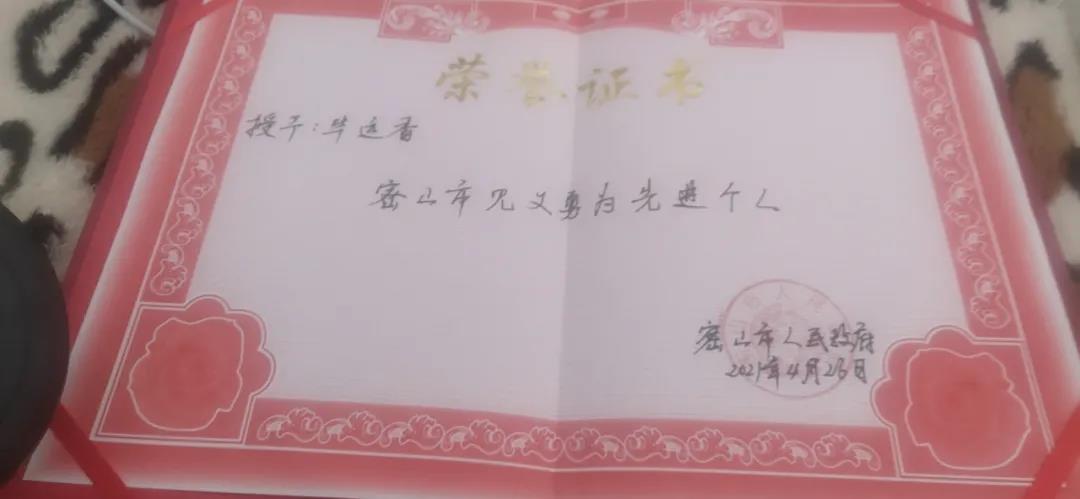 荣誉证书
授予:毕远香
密山市见义勇为先进个人
密山市人民政府
2021年4月26日